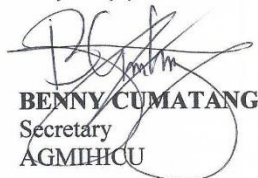 BENNY CUMATANG
Secretary
AGMIHICU